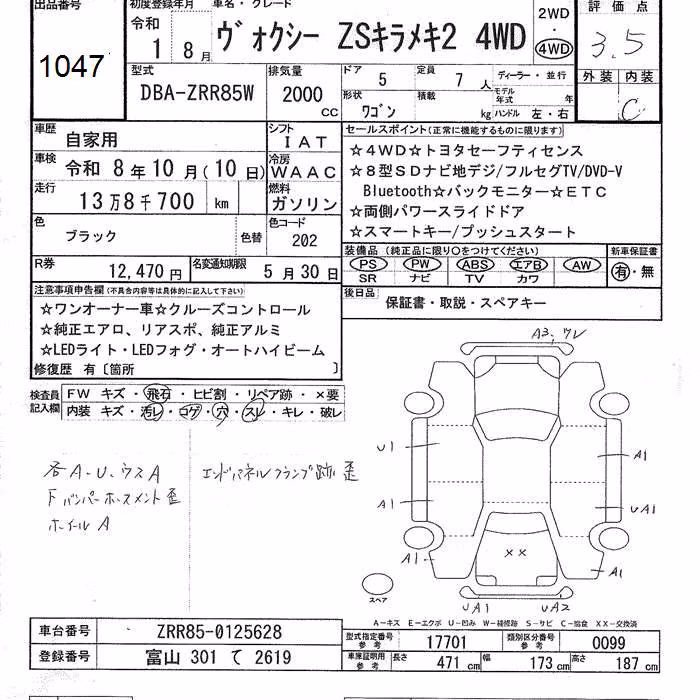 出品番号
1047
初度登録年月
令和
1 8月
車名・グレード
ヴォクシー ZSキラメキ2 4WD
2WD
4WD
評価点
3.5
外装 内装
C
型式
DBA-ZRR85W
排気量
2000
cc
ドア
5
定員
7
人
形状
ワゴン
積載
kg
ディーラー・並行
モデル年式
年
ハンドル 左・右
車歴
自家用
シフト
IAT
車検
令和 8年10月(10日)
冷房
WAAC
走行
13万8千700 km
燃料
ガソリン
色
ブラック
色替
色コード
202
R券
12,470円
名変通知期限
5月30日
セールスポイント(正常に機能するものに限ります)
☆4WD☆トヨタセーフティセンス
☆8型SDナビ地デジ/フルセグTV/DVD-V
Bluetooth☆バックモニター☆ETC
☆両側パワースライドドア
☆スマートキー/プッシュスタート
装備品(純正品に限り○をつけてください)
PS PW ABS エアB AW
SR ナビ TV カワ
新車保証書
有・無
後日品
保証書・取説・スペアキー
注意事項申告欄(不具合内容等は具体的に記入して下さい)
☆ワンオーナー車☆クルーズコントロール
☆純正エアロ、リアスポ、純正アルミ
☆LEDライト・LEDフォグ・オートハイビーム
修復歴 有〔箇所 〕
検査員記入欄
FW キズ・飛石・ヒビ割・リペア跡・×要
内装 キズ・汚レ・コゲ・穴・スレ・キレ・破レ
各A.U.ウスA
Fバンパーホースメント歪
ホイールA
エンドパネルフランプ跡歪
A3.ワレ
U1
A1
A1
UA1
A1
A1
××
UA1
UA2
スペア
A−キズ E−エクボ U−凹み W−補修跡 S−サビ C−腐食 XX−交換済
車台番号
ZRR85-0125628
登録番号
富山 301 て 2619
型式指定番号
参考
17701
類別区分番号
参考
0099
車庫証明用
参考
長さ
471 cm
幅
173 cm
高さ
187 cm